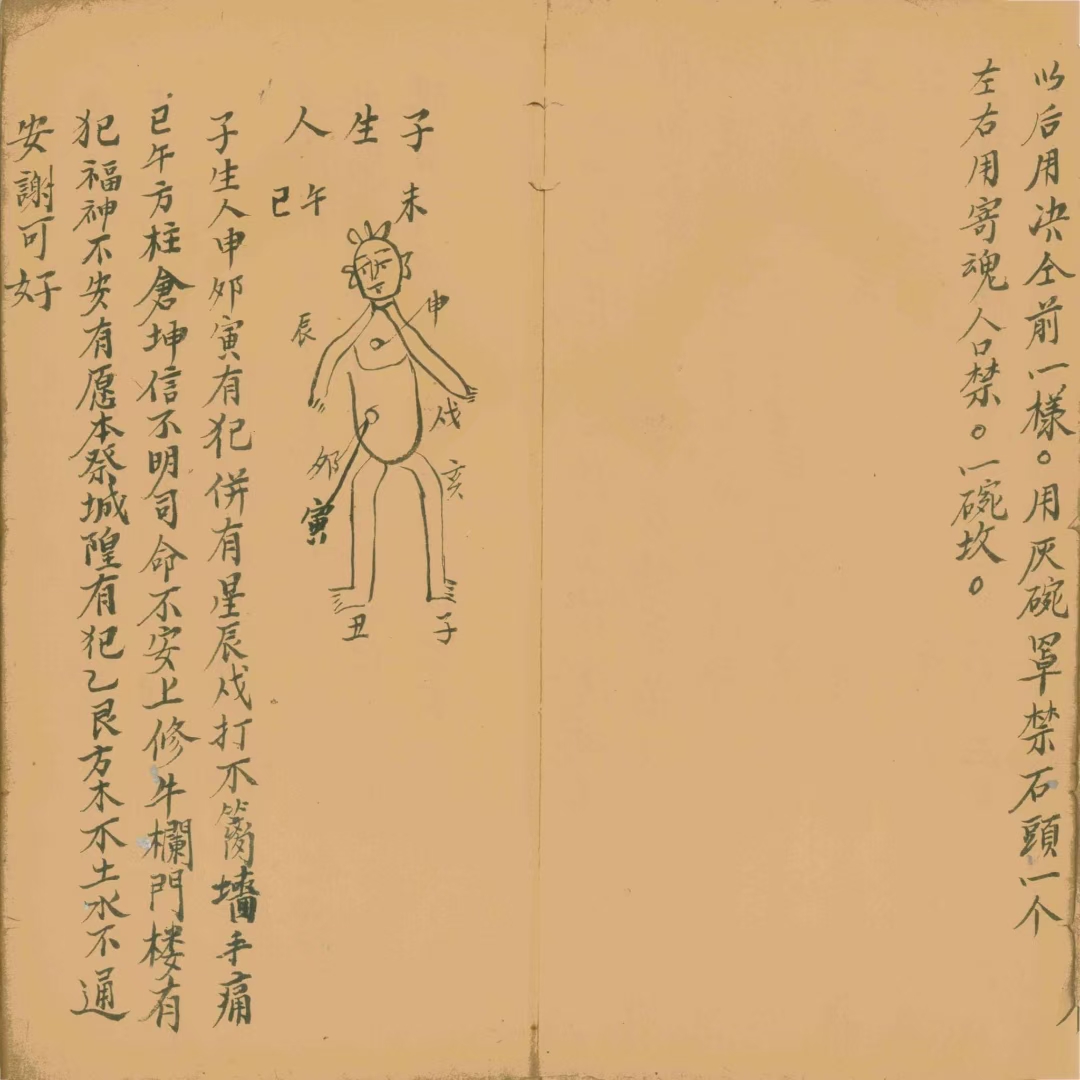 以后用决仝前一樣。用灰碗罩禁石頭一个
左右用寄魂人合禁。一碗坟。
子生人
未
午
巳
申
辰
戌
卯
亥
寅
丑
子
子生人申卯寅有犯併有星辰戌打不墻手痛
巳午方柱倉坤信不明司命不安上修牛欄門楼有
犯福神不安有愿本祭城隍有犯乙艮方木不土水不通
安謝可好